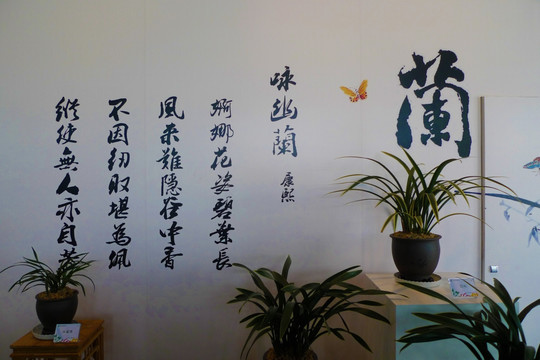 蘭
咏幽蘭
康熙
婀娜花姿碧葉長
風來難隱谷中香
不因紉取堪為佩
縱使無人亦自芳